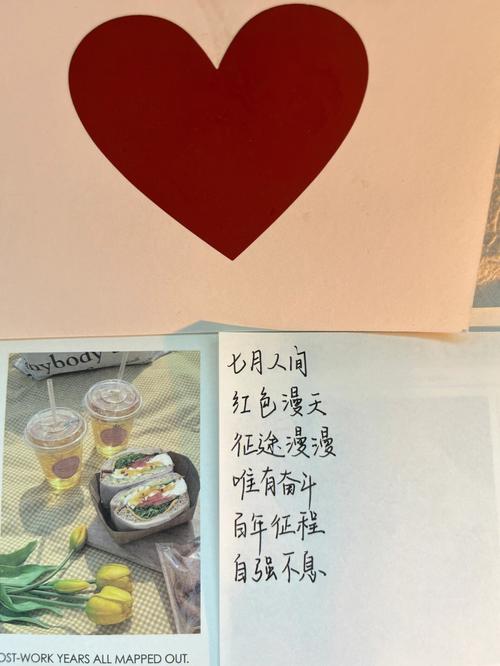 nybody
七月人间
红色漫天
征途漫漫
唯有奋斗
百年征程
自强不息
OST-WORK YEARS ALL MAPPED OUT.